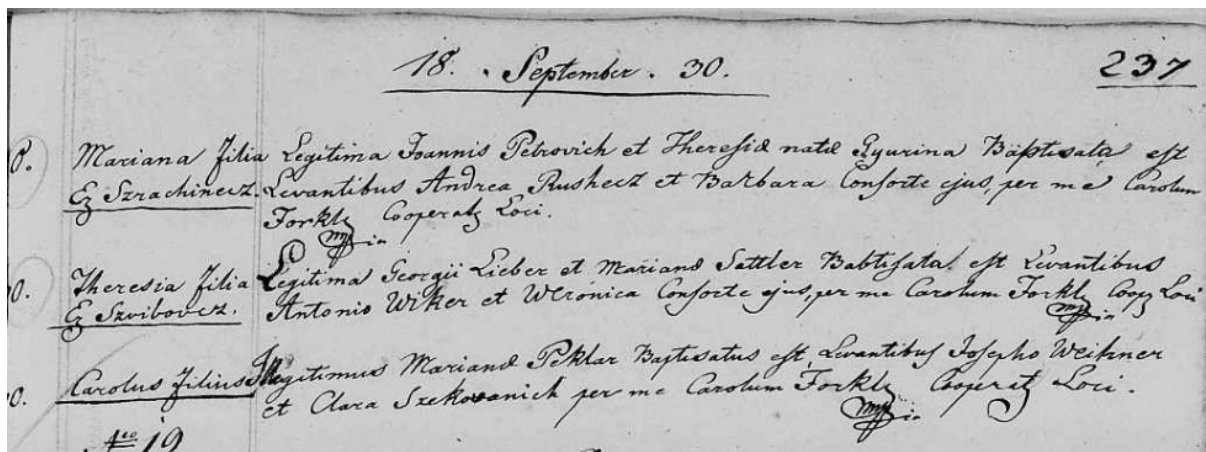 18. September. 30.
237
8. Mariana filia Legitima Joannis Petrovich et Theresiæ natæ Gyurina Baptisata est
Ex Szrachinecz. Levantibus Andrea Rushecz et Barbara Consorte ejus, per me Carolum
Forkl Cooperat Loci.
Theresia filia Legitima Georgii Lieber et Marianæ Sattler Babtisata est Levantibus
Ex Szvibovcz. Antonio Wiker et Weronica Consorte ejus, per me Carolum Forkl Coop Loci
Carolus filius Illegitimus Marianæ Peklar Baptisatus est, Levantibus Josepho Weikner
et Clara Szekovanich per me Carolum Forkl Cooperat Loci.
19